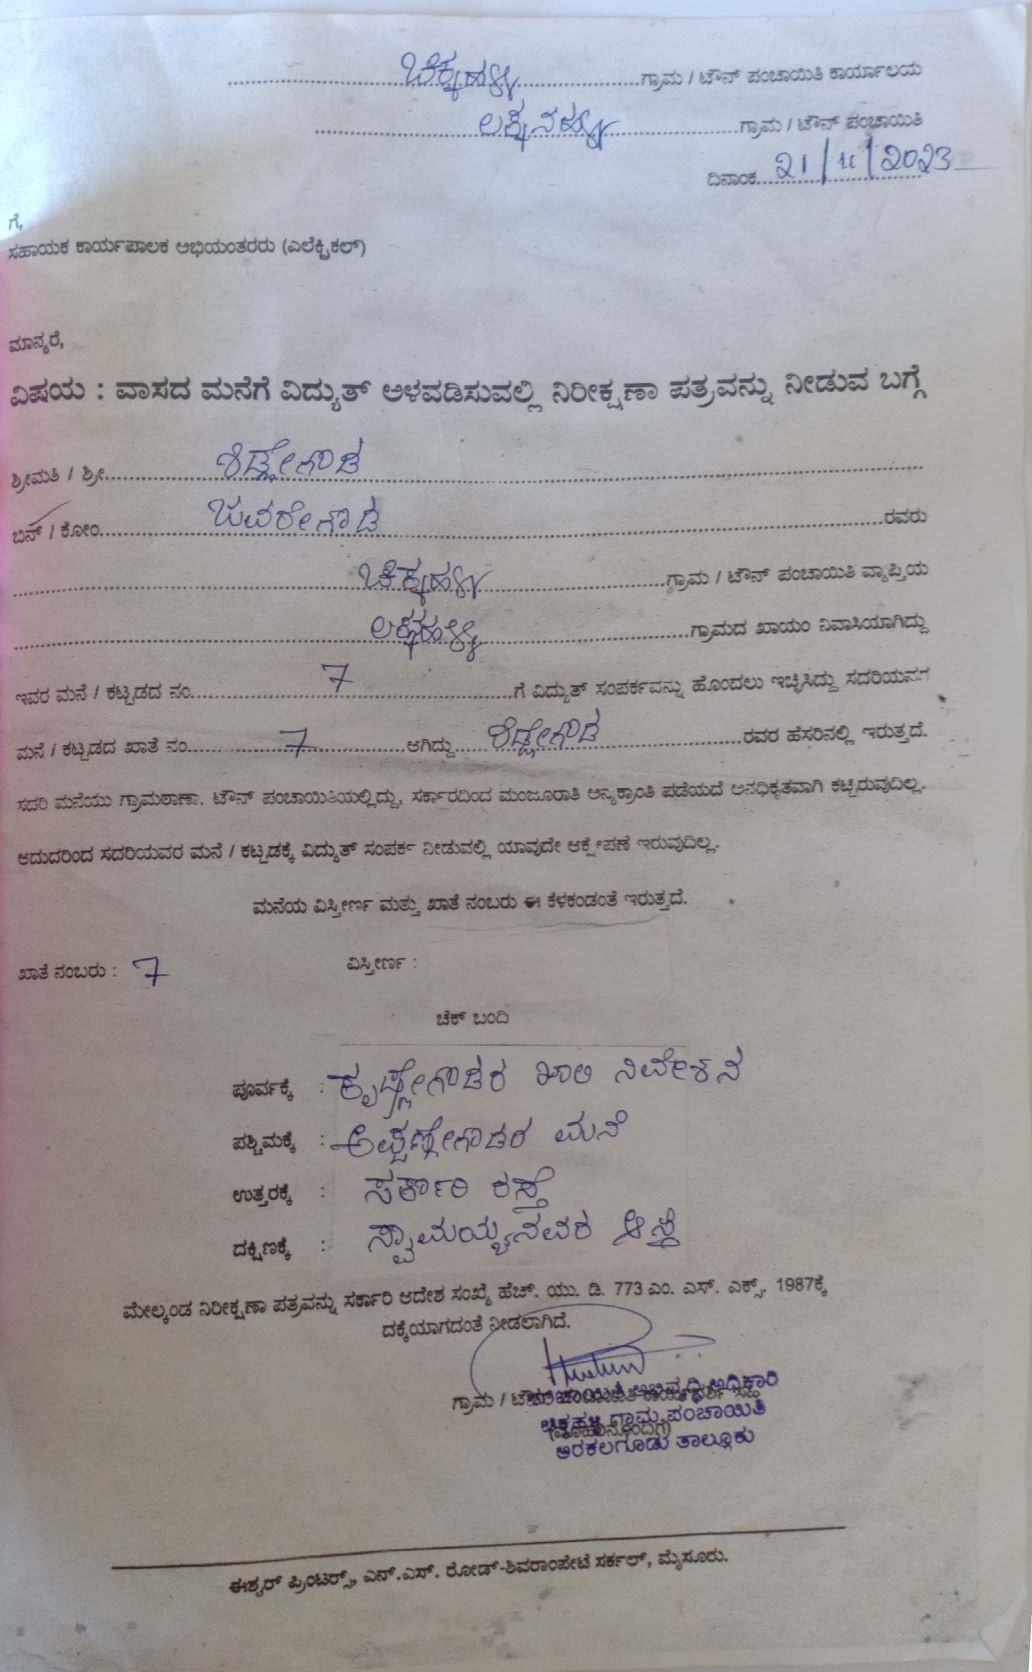 ಚಿಕ್ಕಹಳ್ಳಿ ಗ್ರಾಮ / ಟೌನ್ ಪಂಚಾಯಿತಿ ಕಾರ್ಯಾಲಯ
ಗ್ರಾಮ / ಟೌನ್ ಪಂಚಾಯಿತಿ
ದಿನಾಂಕ 21/11/2023
ಗೆ,
ಸಹಾಯಕ ಕಾರ್ಯಪಾಲಕ ಅಭಿಯಂತರರು (ಎಲೆಕ್ಟ್ರಿಕಲ್)
ಮಾನ್ಯರೆ,
ವಿಷಯ : ವಾಸದ ಮನೆಗೆ ವಿದ್ಯುತ್ ಅಳವಡಿಸುವಲ್ಲಿ ನಿರೀಕ್ಷಣಾ ಪತ್ರವನ್ನು ನೀಡುವ ಬಗ್ಗೆ
ಶ್ರೀಮತಿ / ಶ್ರೀ
ಬಿನ್ / ಕೋಂ ಜವರೇಗೌಡ ರವರು
ಚಿಕ್ಕಹಳ್ಳಿ ಗ್ರಾಮ / ಟೌನ್ ಪಂಚಾಯಿತಿ ವ್ಯಾಪ್ತಿಯ
ಗ್ರಾಮದ ಖಾಯಂ ನಿವಾಸಿಯಾಗಿದ್ದು
ಇವರ ಮನೆ / ಕಟ್ಟಡದ ನಂ. 7 ಗೆ ವಿದ್ಯುತ್ ಸಂಪರ್ಕವನ್ನು ಹೊಂದಲು ಇಚ್ಛಿಸಿದ್ದು ಸದರಿಯವರ
ಮನೆ / ಕಟ್ಟಡದ ಖಾತೆ ನಂ. 7 ಆಗಿದ್ದು ರವರ ಹೆಸರಿನಲ್ಲಿ ಇರುತ್ತದೆ.
ಸದರಿ ಮನೆಯು ಗ್ರಾಮಠಾಣಾ. ಟೌನ್ ಪಂಚಾಯಿತಿಯಲ್ಲಿದ್ದು, ಸರ್ಕಾರದಿಂದ ಮಂಜೂರಾತಿ ಅನ್ಯಕ್ರಾಂತಿ ಪಡೆಯದೆ ಅನಧಿಕೃತವಾಗಿ ಕಟ್ಟಿರುವುದಿಲ್ಲ.
ಆದುದರಿಂದ ಸದರಿಯವರ ಮನೆ / ಕಟ್ಟಡಕ್ಕೆ ವಿದ್ಯುತ್ ಸಂಪರ್ಕ ನೀಡುವಲ್ಲಿ ಯಾವುದೇ ಆಕ್ಷೇಪಣೆ ಇರುವುದಿಲ್ಲ.
ಮನೆಯ ವಿಸ್ತೀರ್ಣ ಮತ್ತು ಖಾತೆ ನಂಬರು ಈ ಕೆಳಕಂಡಂತೆ ಇರುತ್ತದೆ.
ಖಾತೆ ನಂಬರು : 7 ವಿಸ್ತೀರ್ಣ :
ಚೆಕ್ ಬಂದಿ
ಪೂರ್ವಕ್ಕೆ : ಕೃಷ್ಣೇಗೌಡರ ಖಾಲಿ ನಿವೇಶನ
ಪಶ್ಚಿಮಕ್ಕೆ : ಅಪ್ಪಣ್ಣೇಗೌಡರ ಮನೆ
ಉತ್ತರಕ್ಕೆ : ಸರ್ಕಾರಿ ರಸ್ತೆ
ದಕ್ಷಿಣಕ್ಕೆ : ಸ್ವಾಮಯ್ಯನವರ ಆಸ್ತಿ
ಮೇಲ್ಕಂಡ ನಿರೀಕ್ಷಣಾ ಪತ್ರವನ್ನು ಸರ್ಕಾರಿ ಆದೇಶ ಸಂಖ್ಯೆ ಹೆಚ್. ಯು. ಡಿ. 773 ಎಂ. ಎಸ್. ಎಕ್ಸ್. 1987ಕ್ಕೆ
ದಕ್ಕೆಯಾಗದಂತೆ ನೀಡಲಾಗಿದೆ.
ಗ್ರಾಮ / ಪಂಚಾಯಿತಿ ಅಭಿವೃದ್ಧಿ ಅಧಿಕಾರಿ
ಚಿಕ್ಕಹಳ್ಳಿ ಗ್ರಾಮ ಪಂಚಾಯಿತಿ
ಅರಕಲಗೂಡು ತಾಲ್ಲೂಕು
ಈಶ್ವರ್ ಪ್ರಿಂಟರ್ಸ್, ಎನ್.ಎಸ್. ರೋಡ್-ಶಿವರಾಂಪೇಟೆ ಸರ್ಕಲ್, ಮೈಸೂರು.